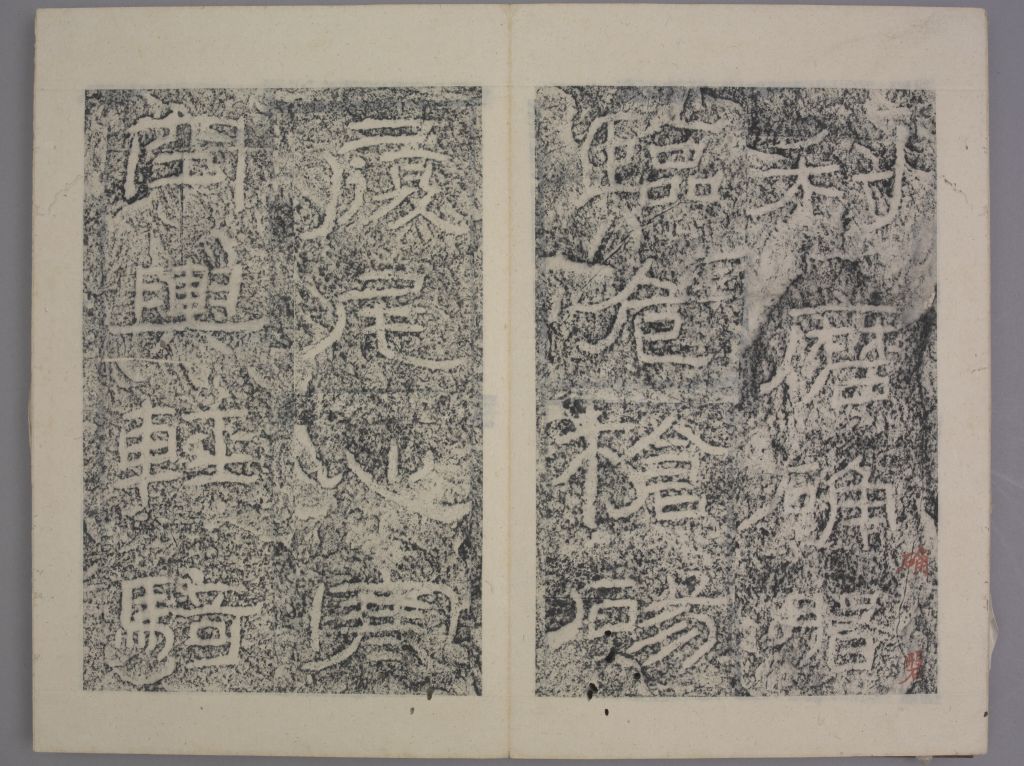 利磨确磐
臨危槍碭
履尾心寒
空輿輕騎
确
磐